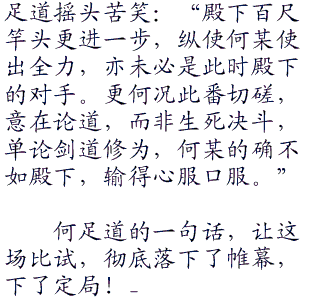 足道摇头苦笑：“殿下百尺
竿头更进一步，纵使何某使
出全力，亦未必是此时殿下
的对手。更何况此番切磋，
意在论道，而非生死决斗，
单论剑道修为，何某的确不
如殿下，输得心服口服。”
何足道的一句话，让这
场比试，彻底落下了帷幕，
下了定局！_